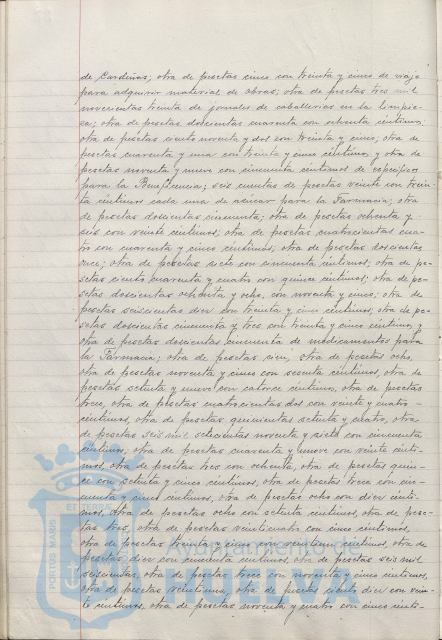 de Cardeñas; otra de pesetas cinco con treinta y cinco de viaje
para adquirir material de obras; otra de pesetas tres mil
novecientas treinta de jornales de caballerías en la limpie-
za; otra de pesetas doscientas cuarenta con ochenta céntimos;
otra de pesetas ciento noventa y dos con treinta y cinco; otra de
pesetas cuarenta y una con treinta y cinco céntimos, y otra de
pesetas noventa y nueve con cincuenta céntimos de específicos
para la Beneficencia; seis cuentas de pesetas veinte con trein
ta céntimos cada una de azucar para la Farmacia; otra
de pesetas doscientas cincuenta; otra de pesetas ochenta y
seis con veinte céntimos; otra de pesetas cuatrocientas cua-
tro con cuarenta y cinco céntimos, otra de pesetas doscientas
once; otra de pesetas siete con cincuenta céntimos; otra de pe-
setas ciento cuarenta y cuatro con quince céntimos; otra de pe-
setas doscientas ochenta y ocho, con noventa y cinco; otra de
pesetas seiscientas diez con treinta y cinco céntimos, otra de pe-
setas doscientas cincuenta y tres con treinta y cinco céntimos, y
otra de pesetas doscientas cincuenta de medicamentos para
la Farmacia; otra de pesetas cien, otra de pesetas ocho,
otra de pesetas noventa y cinco con sesenta céntimos, otra de
pesetas setenta y nueve con catorce céntimos, otra de pesetas
trece, otra de pesetas cuatrocientas dos con veinte y cuatro
céntimos, otra de pesetas quinientas setenta y cuatro, otra
de pesetas seis mil setecientas noventa y siete con cincuenta
céntimos, otra de pesetas cuarenta y nueve con veinte cénti-
mos, otra de pesetas tres con ochenta, otra de pesetas quin-
ce con setenta y cinco céntimos, otra de pesetas trece con cin-
cuenta y cinco céntimos, otra de pesetas ocho con diez cénti-
mos, otra de pesetas ocho con setenta céntimos, otra de pese-
tas tres, otra de pesetas veinticuatro con cinco céntimos,
otra de pesetas treinta y cinco con veintiun céntimos, otra de
pesetas diez con cincuenta céntimos, otra de pesetas seis mil
seiscientas, otra de pesetas trece con noventa y cinco céntimos,
otra de pesetas veintiuna, otra de pesetas ciento diez con vein-
te céntimos, otra de pesetas noventa y cuatro con cinco cénti-
PORTUS MARIS
ET
Ayuntamiento de